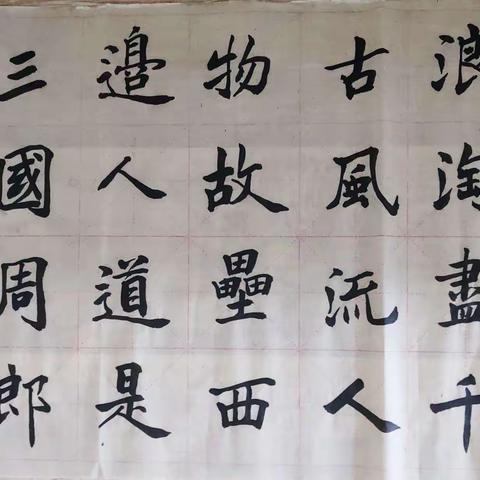 浪淘盡千
古風流人
物故壘西
邉人道是
三國周郎